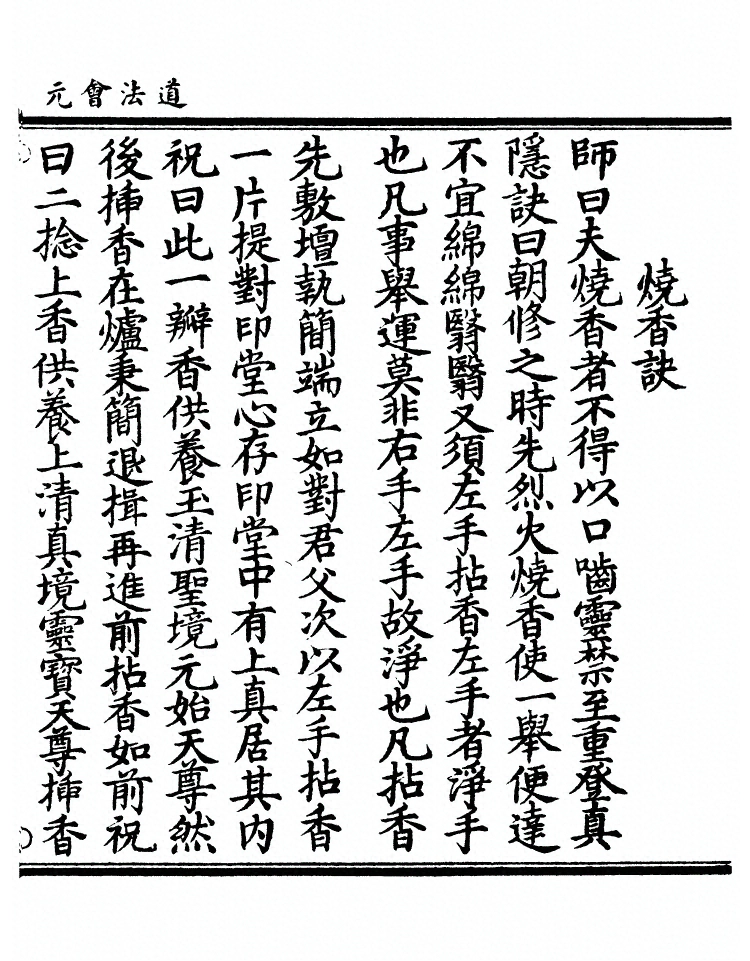 道法會元
燒香訣
師曰夫燒香者不得以口嚙靈禁至重登真
隱訣曰朝修之時先烈火燒香使一舉便達
不宜綿綿翳翳又須左手拈香左手者淨手
也凡事舉運莫非右手左手故淨也凡拈香
先敷壇執簡端立如對君父次以左手拈香
一片提對印堂心存印堂中有上真居其內
祝曰此一瓣香供養玉清聖境元始天尊然
後揷香在爐秉簡退揖再進前拈香如前祝
曰二捻上香供養上清真境靈寶天尊揷香